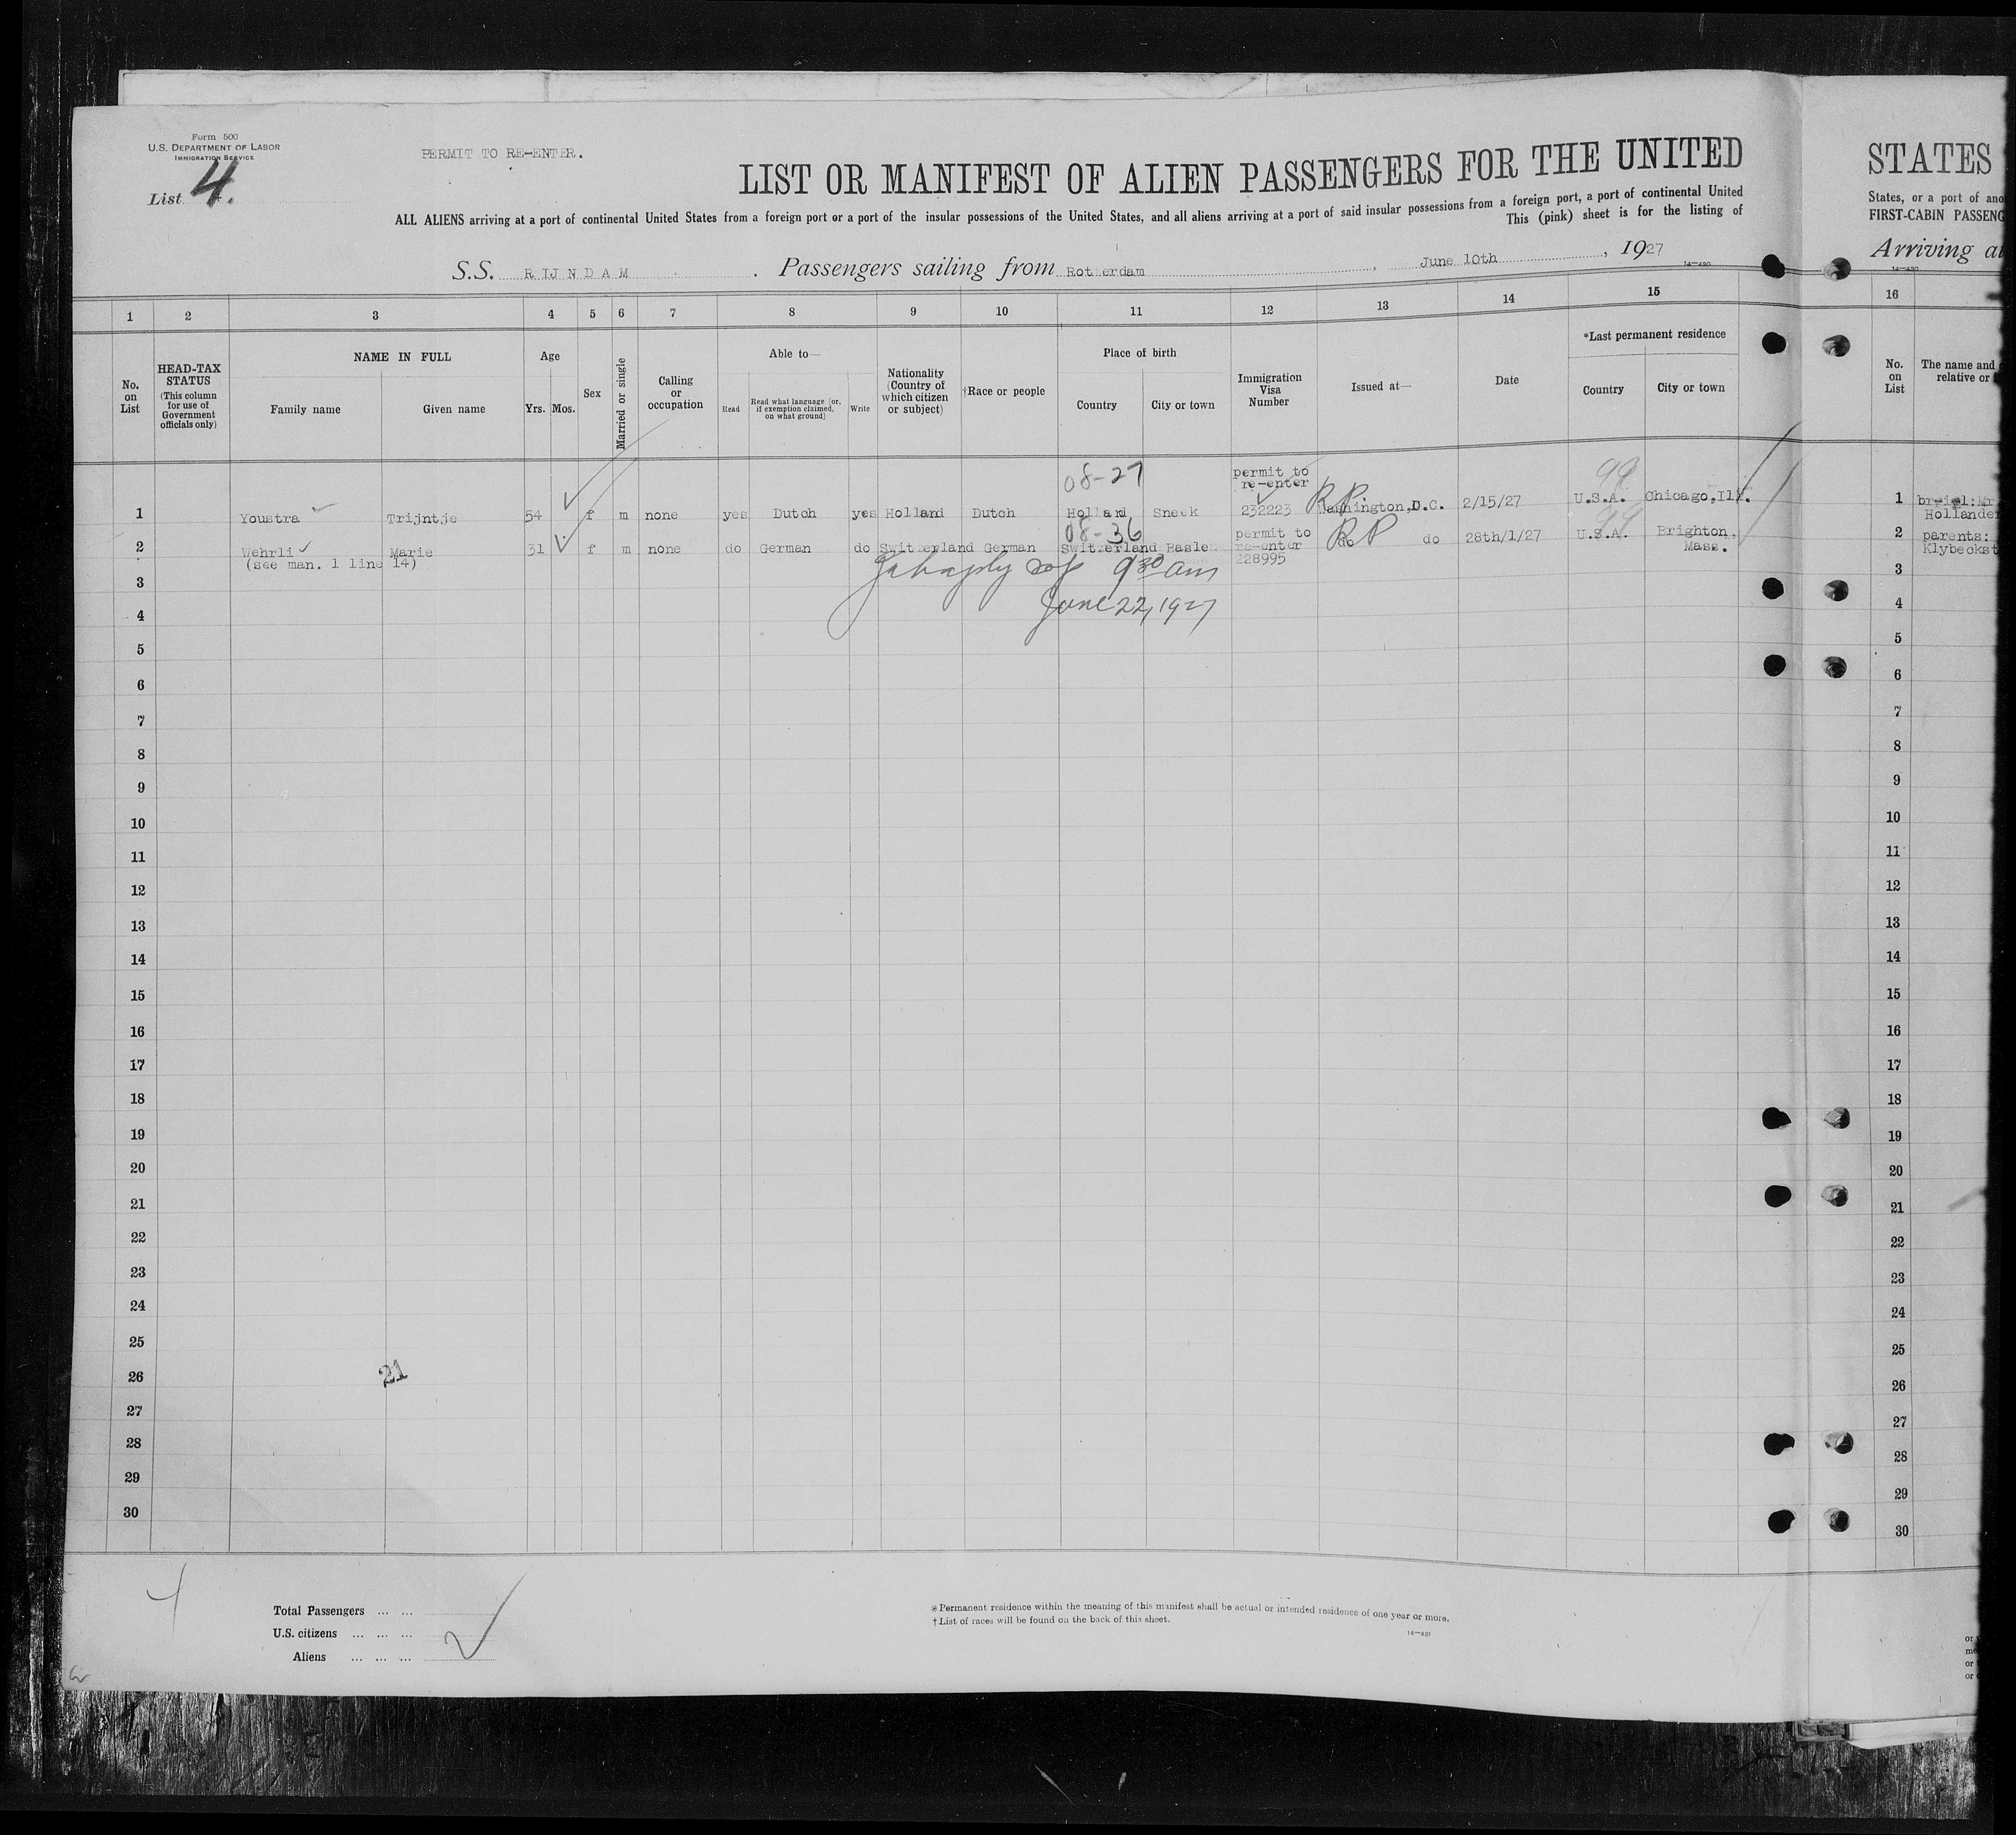 Form 500
U.S. DEPARTMENT OF LABOR
IMMIGRATION SERVICE
List 4.
PERMIT TO RE-ENTER.
LIST OR MANIFEST OF ALIEN PASSENGERS FOR THE UNITED
ALL ALIENS arriving at a port of continental United States from a foreign port or a port of the insular possessions of the United States, and all aliens arriving at a port of said insular possessions from a foreign port, a port of continental United
This (pink) sheet is for the listing of
S.S. RIJNDAM. Passengers sailing from Rotterdam, June 10th, 1927
14—480
1 2 3 4 5 6 7 8 9 10 11 12 13 14 15
No. on List
HEAD-TAX STATUS (This column for use of Government officials only)
NAME IN FULL
Family name Given name
Age
Yrs. Mos.
Sex
Married or single
Calling or occupation
Able to—
Read
Read what language [or, if exemption claimed, on what ground]
Write
Nationality (Country of which citizen or subject)
†Race or people
Place of birth
Country City or town
Immigration Visa Number
Issued at—
Date
*Last permanent residence
Country City or town
08-27
permit to re-enter
99
1 Youstra Trijntje 54 f m none yes Dutch yes Holland Dutch Holland Sneek 232223 Washington,D.C. 2/15/27 U.S.A. Chicago,Ill.
RP
08-36
2 Wehrli Marie 31 f m none do German do Switzerland German Switzerland Basle permit to re-enter 228995 do do 28th/1/27 U.S.A. Brighton, Mass.
RP
99
(see man. 1 line 14)
9 30 am
June 22, 1927
3
4
5
6
7
8
9
10
11
12
13
14
15
16
17
18
19
20
21
22
23
24
25
26
27
28
29
30
21
Total Passengers ... ...
U.S. citizens ... ... ...
Aliens ... ... ...
*Permanent residence within the meaning of this manifest shall be actual or intended residence of one year or more.
†List of races will be found on the back of this sheet.
14—481
STATES
States, or a port of
FIRST-CABIN
Arriving
14—480
16
No. on List
The name and
relative or
1
Hollander
2 parents:
3
4
5
6
7
8
9
10
11
12
13
14
15
16
17
18
19
20
21
22
23
24
25
26
27
28
29
30